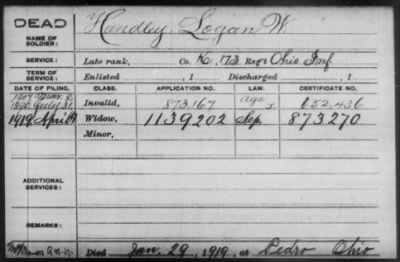 DEAD
NAME OF SOLDIER: Handley, Logan W.
SERVICE: Late rank, Co. K, 173 Reg't Ohio Inf
TERM OF SERVICE: Enlisted , 1 Discharged , 1
DATE OF FILING. CLASS. APPLICATION NO. LAW. CERTIFICATE NO.
1890 July 31, Invalid, 873,167 Age 652,436
1919 April Widow, 1139202 Sep 873270
Minor,
ADDITIONAL SERVICES:
REMARKS:
Died Jan. 29, 1919, at Pedro Ohio